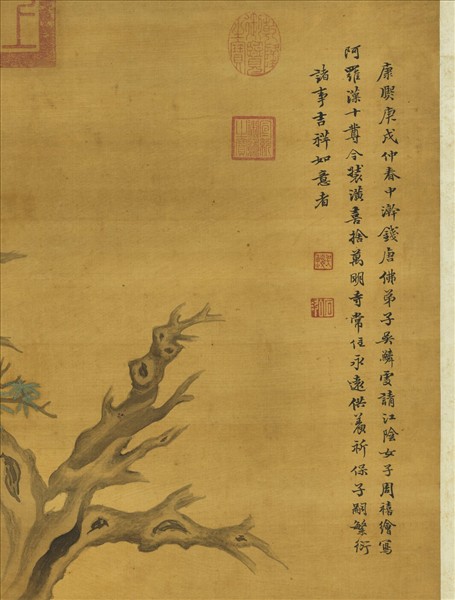 康熙庚戌仲春中澣錢唐佛弟子吳鱗雯請江陰女子周禧繪寫
阿羅漢十尊今裝潢喜捨萬明寺常住永遠供養祈保子嗣繁衍
諸事吉祥如意者